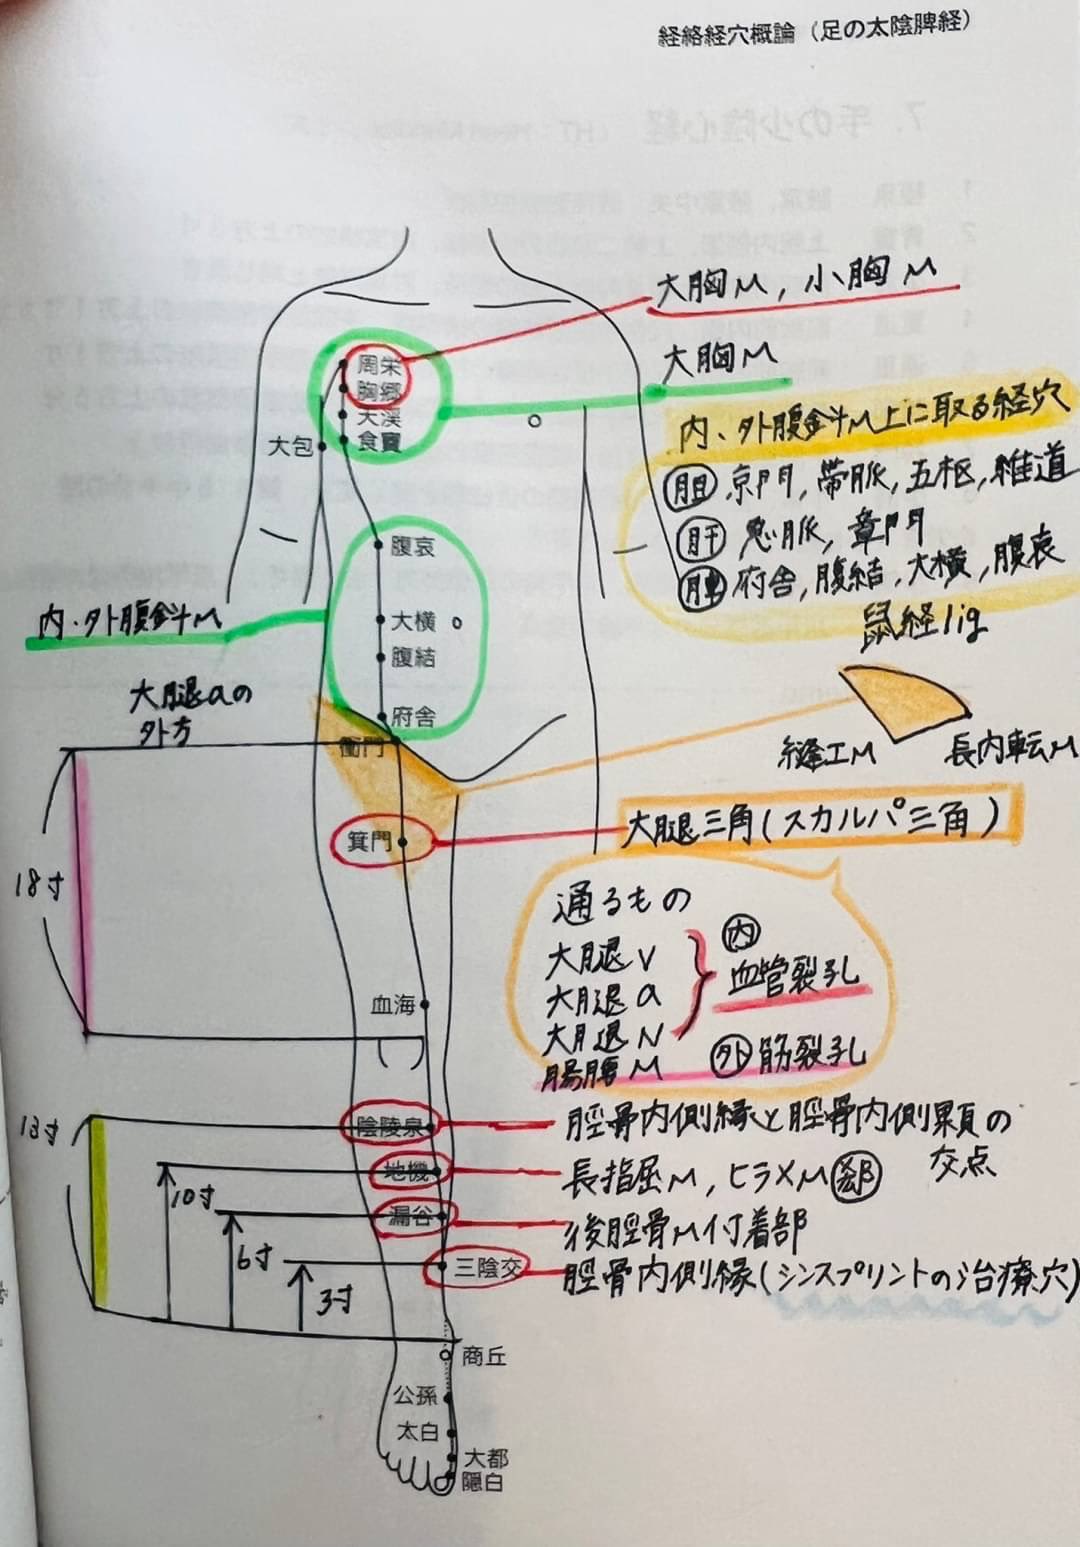 経絡経穴概論（足の太陰脾経）
7．手の少陰心経
大胸M，小胸M
大胸M
周栄
胸郷
天渓
食竇
大包
内・外腹斜M上に取る経穴
胆 京門，帯脈，五枢，維道
肝 急脈，章門
脾 府舎，腹結，大横，腹哀
腹哀
大横
腹結
府舎
内・外腹斜M
鼠経lig
縫工M
長内転M
大腿aの
外方
衝門
箕門
大腿三角（スカルパ三角）
18寸
通るもの
大腿V
大腿a
大腿N
内
血管裂孔
腸腰M
外 筋裂孔
血海
13寸
陰陵泉
脛骨内側縁と脛骨内側顆の
交点
地機
長指屈M，ヒラメM 郄
10寸
漏谷
後脛骨M付着部
6寸
三陰交
脛骨内側縁（シンスプリントの治療穴）
3寸
商丘
公孫
太白
大都
隠白